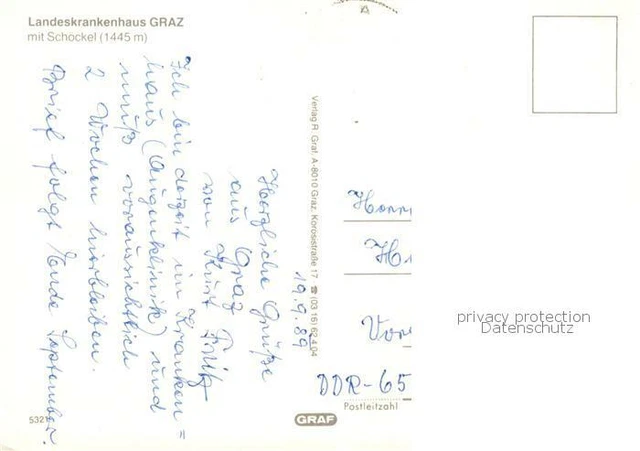 Landeskrankenhaus GRAZ
mit Schöckel (1445 m)
19.9.89
Herzliche Grüße
aus Graz
von Kurt Fritz
Ich bin derzeit im Kranken=
haus (Augenklinik) und
muß voraussichtlich
2 Wochen hierbleiben.
Brief folgt Ende September.
Verlag R. Graf, A-8010 Graz, Korosistraße 17 ☎ (03 16) 62 4 04
DDR-65
Postleitzahl
GRAF
privacy protection
Datenschutz